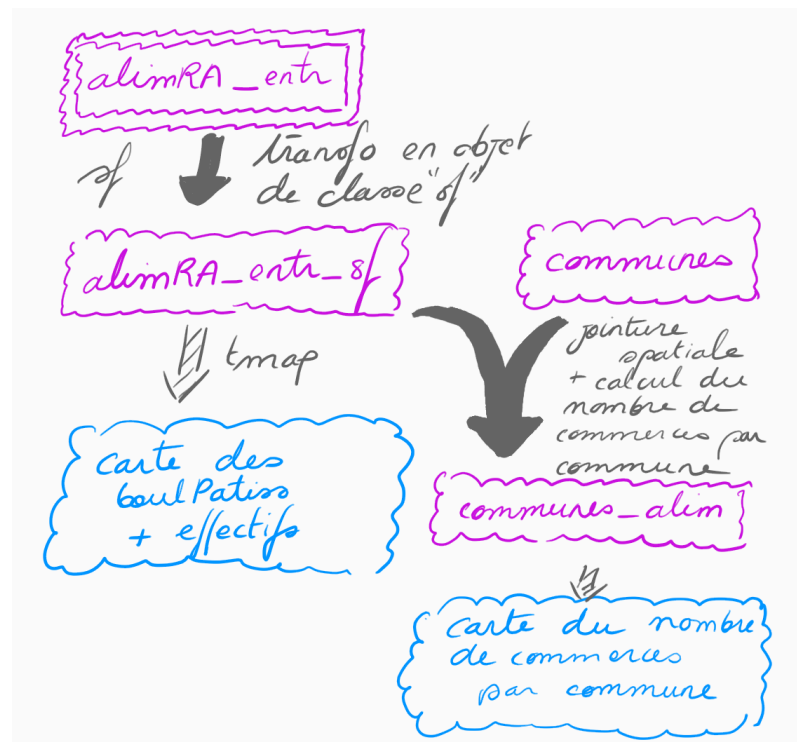 alimRA_entr
sf
transfo en objet
de classe "sf"
alimRA_entr_sf
communes
tmap
jointure
spatiale
+ calcul du
nombre de
commerces par
commune
carte des
boulPatiss
+ effectifs
communes_alim
carte du nombre
de commerces
par commune